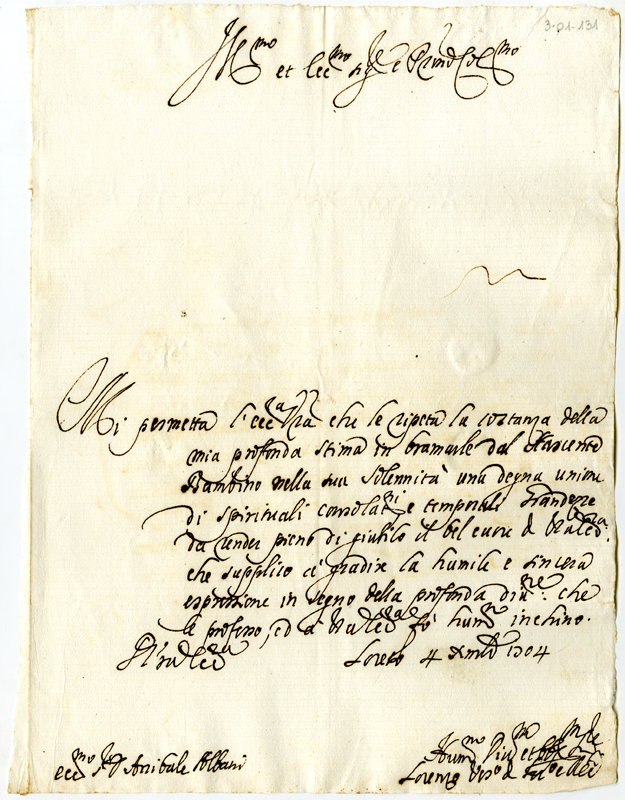 3-01-131
Ill.mo et Ecc.mo Sig.re e P.rone Col.mo
Mi permetta l'Ecc.a V.ra che le ripeta la costanza della
mia profonda stima in bramarle dal Nascente
Bambino nella sua solennità una degna unione
di spirituali consolat.ni e temporali grandezze
da render pieno di giubilo il bel cuore di V.ra Ecc.za
che supplico à gradire la humile e sincera
espressione in segno della profonda div.ne che
le professo, ed à V.ra Ecc.za fò hum.mo inchino.
Di V.ra Ecc.za
Loreto 4 Xmbre 1704
Ecc.mo S.r D. Annibale Albani
Hum.mo Div.mo et Obl.mo
Lorenzo Vesc.o di